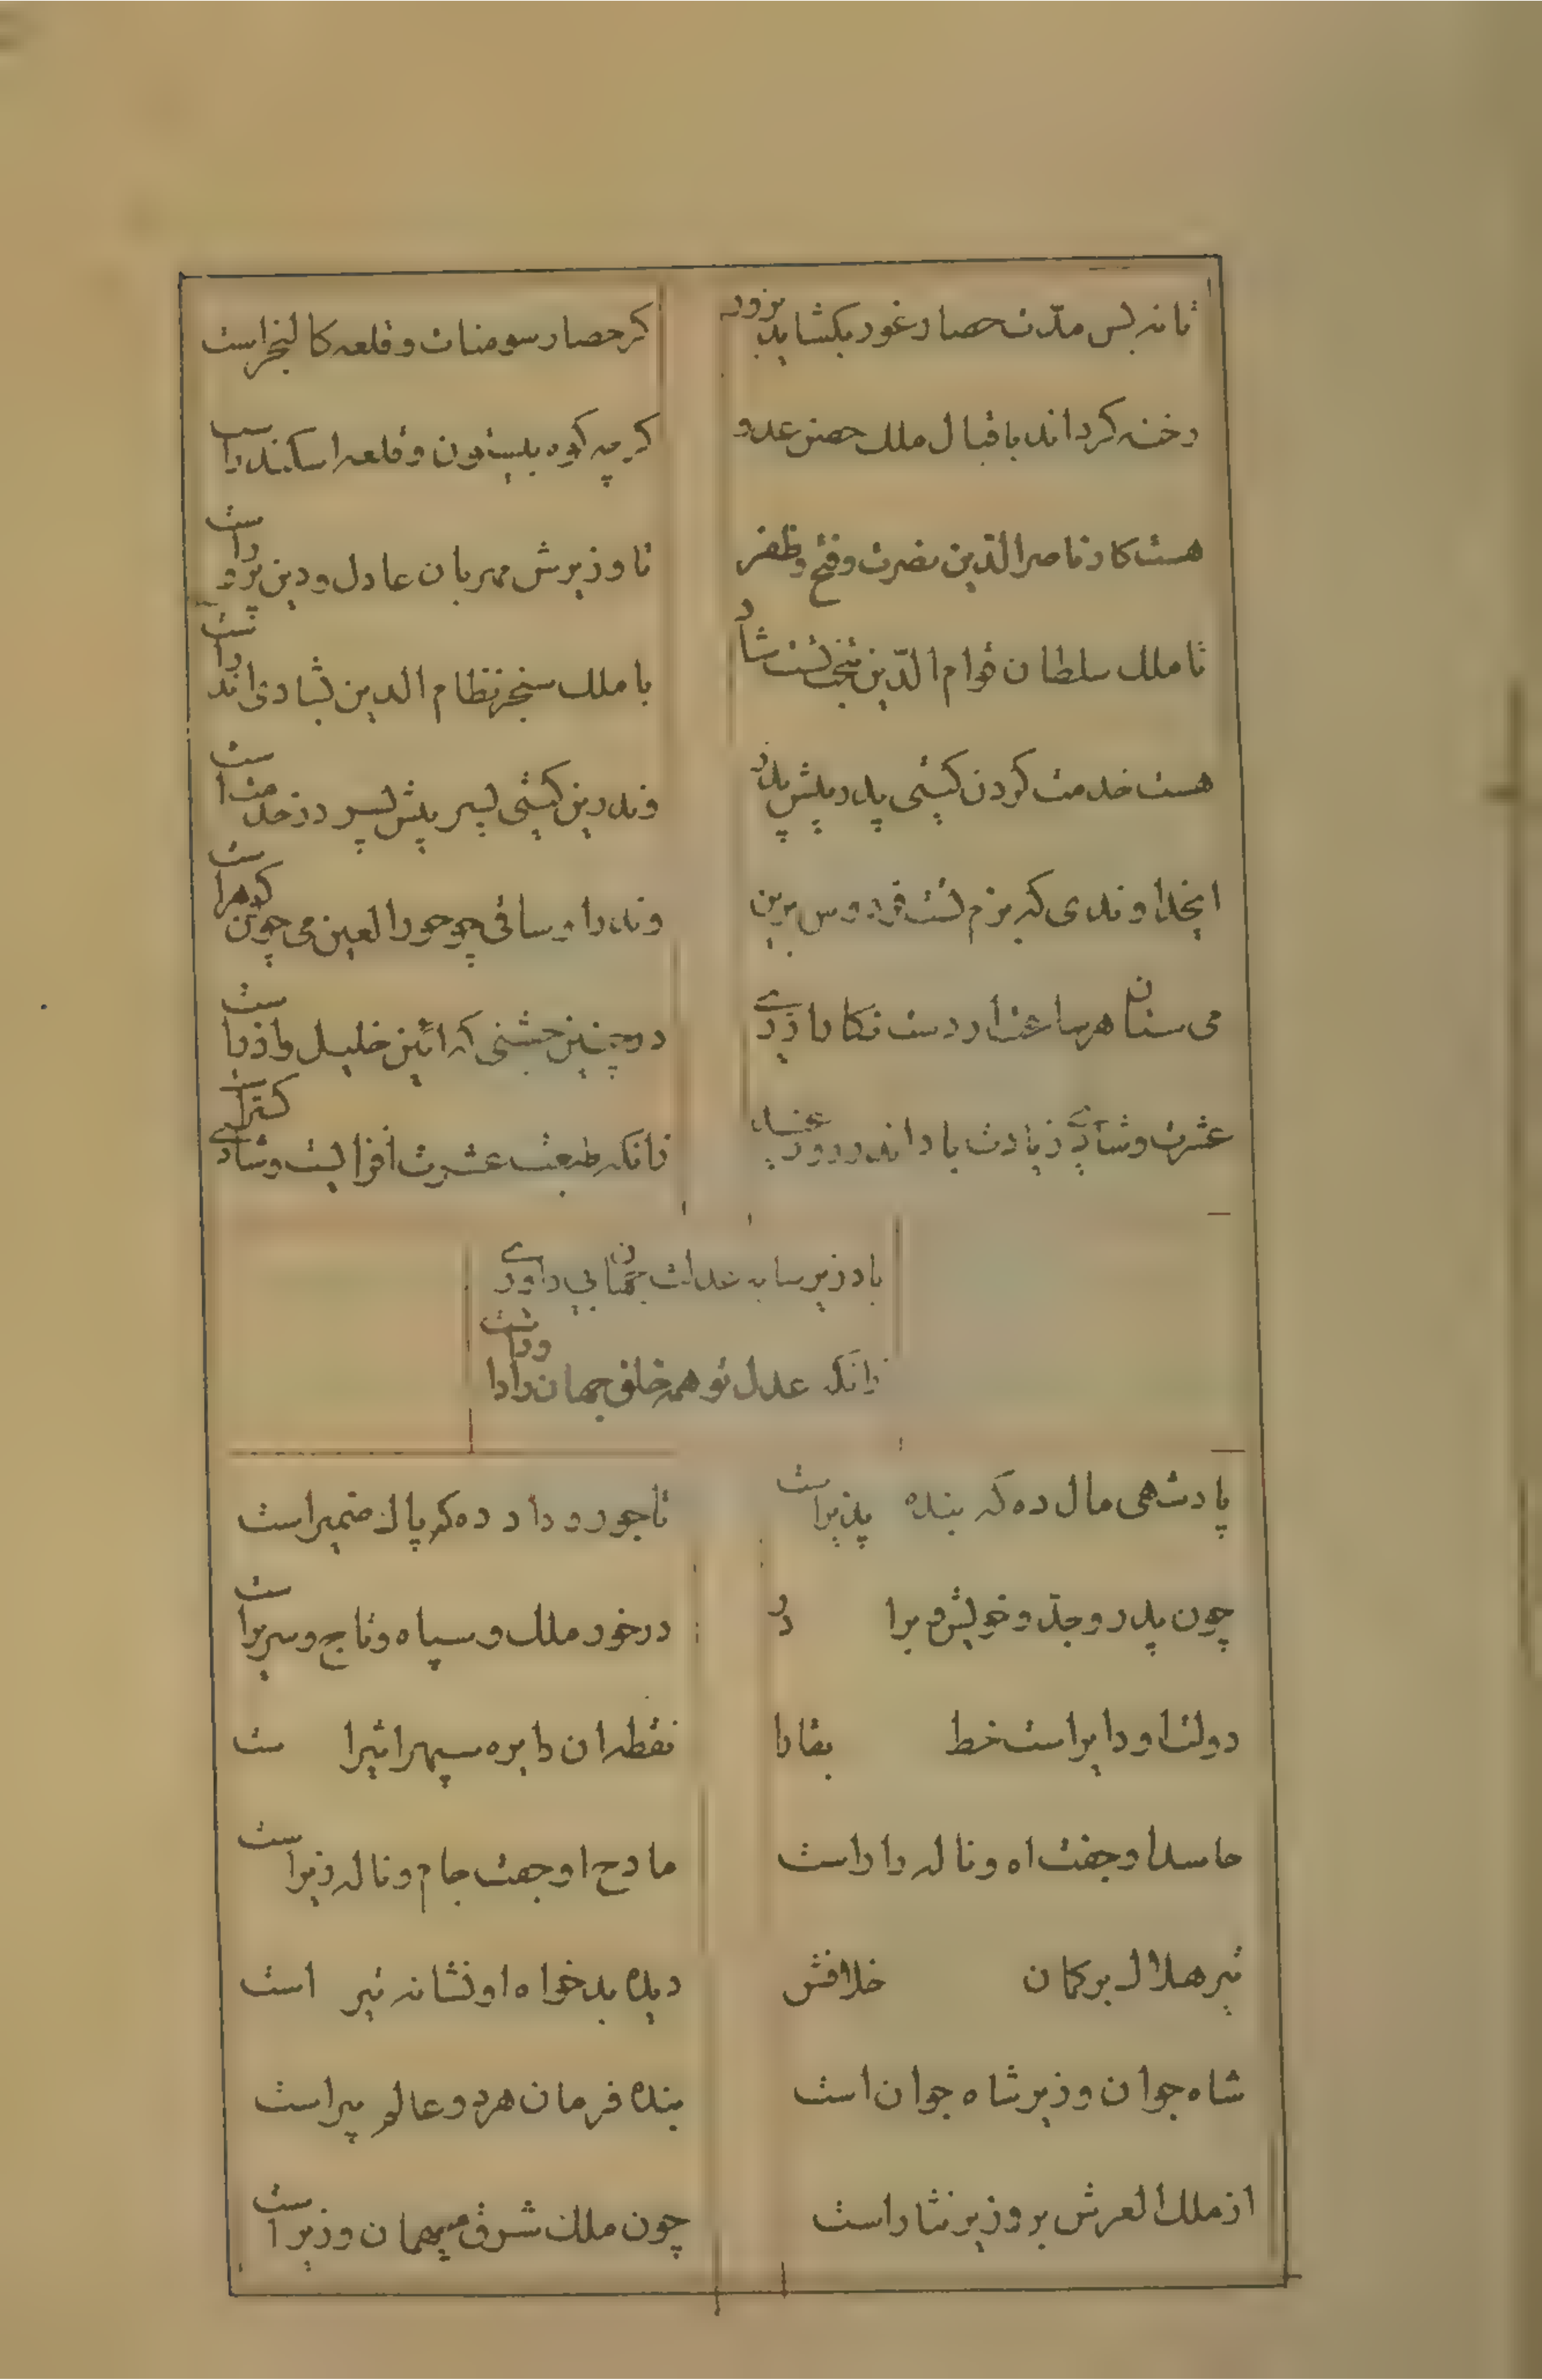 تا نه بس مدّت حصار غور بکشاید بزور
کر حصار سومنات و قلعه کالنجر است
رخنه کرداند باقبال ملک حصن عدو
کر چه کوه بیستون و قلعه اسکندراست
هست کار ناصرالدّین نصرت و فتح و ظفر
تا وزیرش مهربان عادل و دین پرور است
تا ملک سلطان قوام الدّین تخت شاد
با ملک سنجر نظام الدین بشادی اندر است
هست خدمت کردن کیتی پدر پیش پدر
وندرین کیتی پسر پیش پسر در خدمت است
ایخداوندی که بزم تست فردوس برین
وندر او ساقی چو حورالعین می چون کوهراست
می ستان هر ساعت از دست نکاری
در چنین جشنی که ائین خلیل و اذراست
عشرت و شادی زیادت باد اندر روز عید
زانکه طبعت عشرت افزایست و شادی کستراست
باد زیر سایه عدلت جهان بی داوری
زانکه عدل تو همه خلق جهانرا داوراست
پادشهی مال ده که بنده پذیراست
تاجور و داد ده که پاک ضمیراست
چون پدر و جدّ و خویش و برادر
در خور ملک و سپاه و تاج و سریراست
دولت او دایراست خط بقا را
نقطه ان دایره سپهر اثیراست
حاسد او جفت اه و ناله زاراست
مادح او جفت جام و ناله زیراست
تیر هلالی بر کمان خلافش
دیده بدخواه او نشانه تیر است
شاه جوان وزیر شاه جوان است
بنده فرمان هر دو عالم پیراست
از ملک العرش بر وزیر نثاراست
چون ملک شرق میهمان وزیراست